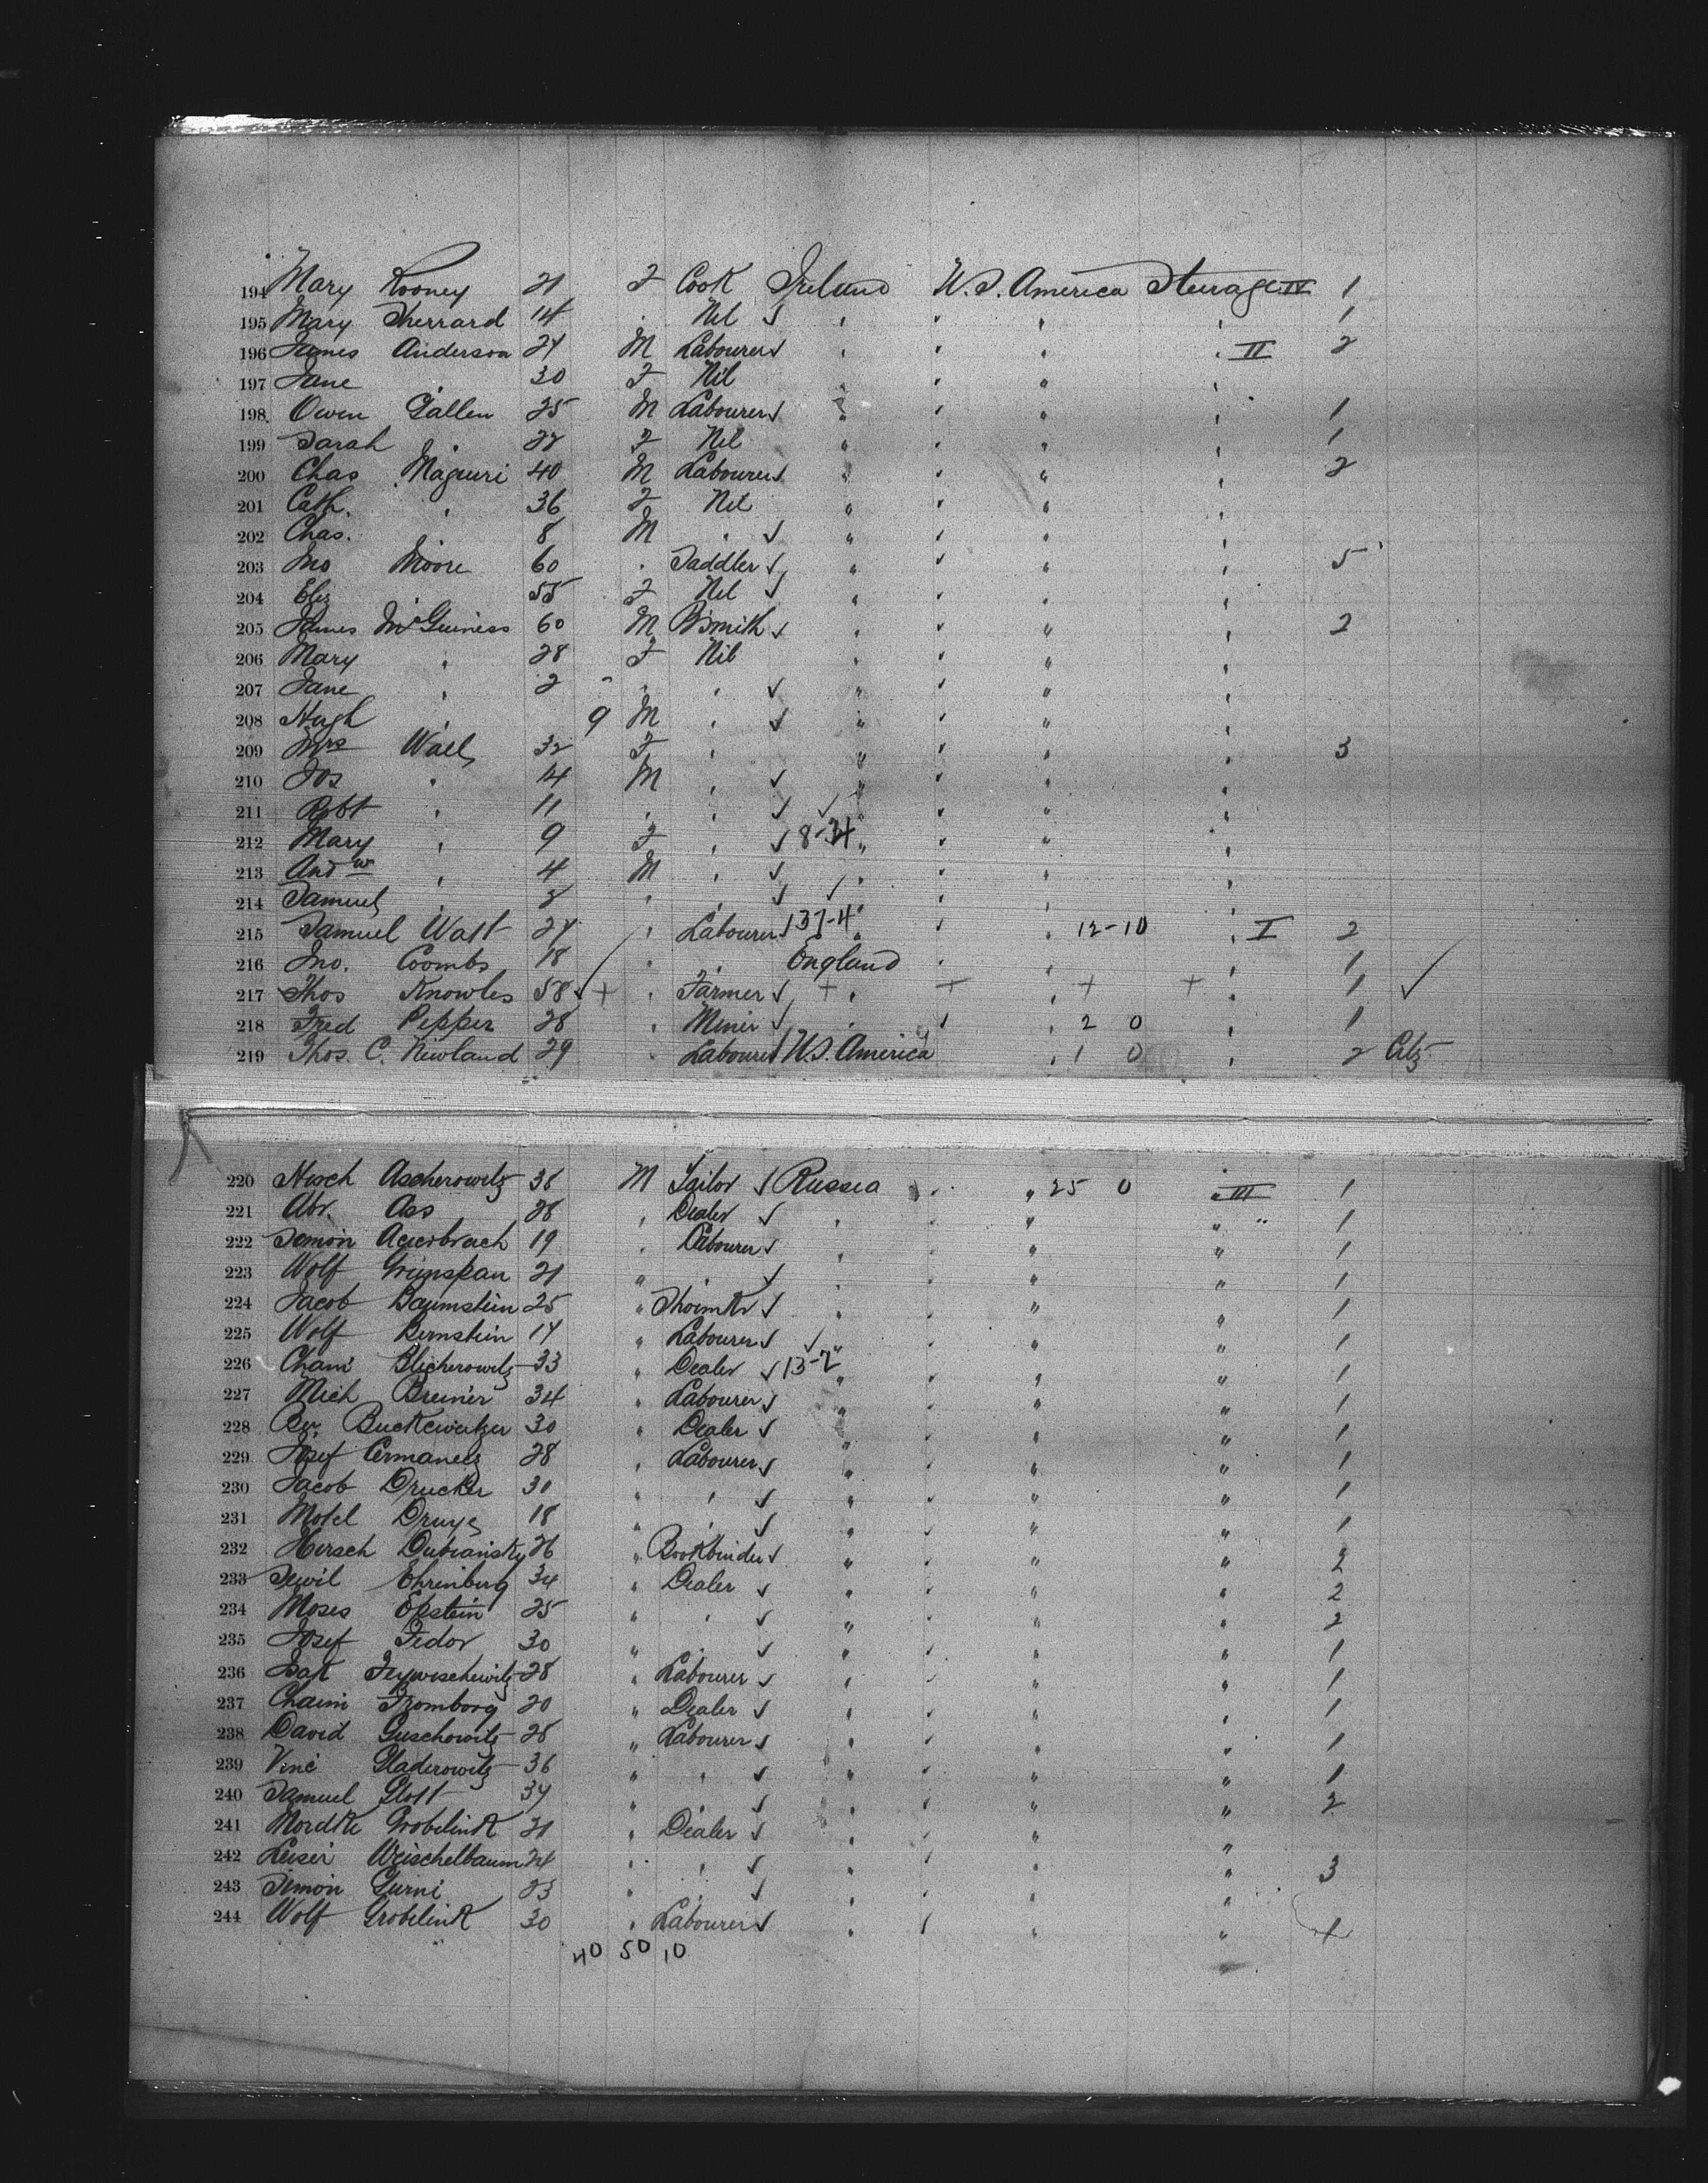 194 Mary Rooney 21 F Cook Ireland U.S. America Steerage IV 1
195 Mary Sherrard 14 " Nil ✓ " " " " 1
196 James Anderson 24 M Labourer ✓ " " " " II 2
197 Jane " 30 F Nil " " " "
198 Owen Gallen 25 M Labourer ✓ " " " " 1
199 Sarah " 22 F Nil " " " " 1
200 Chas Maguiri 40 M Labourer ✓ " " " " 2
201 Cath. " 36 F Nil " " " "
202 Chas. 8 M " ✓ " " " "
203 Jno Moore 60 " Saddler ✓ " " " " 5
204 Eliz 55 F Nil ✓ " " " "
205 James McGuiness 60 M B'smith ✓ " " " " 2
206 Mary " 28 F Nil " " " "
207 Jane " 2 " " ✓ " " " "
208 Hugh " 9 M " ✓ " " " "
209 Mrs Wall 32 F " " " " " 3
210 Jos " 14 M " ✓ " " " "
211 Robt " 11 " " ✓ ✓ " " " "
212 Mary " 9 F " ✓ 8-34 " " " "
213 Andw " 4 M " ✓ " " " "
214 Samuel " 2 " " ✓ ✓ " " " "
215 Samuel Watt 24 " Labourer ✓ 37-4 " " " 12-10 " I 2
216 Jno. Coombs 18 " " England " " " 1
217 Thos Knowles 58 ✓ + " Farmer ✓ + " + " + + " 1 ✓
218 Fred Pepper 28 " Miner ✓ " " " 2 0 " 1
219 Thos. C. Newland 29 " Labourer ✓ U.S. America " 1 0 " 2 Ctz
220 Hesch Ascherowitz 38 M Tailor ✓ Russia " " 25 0 " III 1
221 Abr. Ass 28 " Dealer ✓ " " " " " 1
222 Semon Auerbach 19 " Labourer ✓ " " " " 1
223 Wolf Grinspan 21 " " ✓ " " " " 1
224 Jacob Baumstein 25 " Shoemkr ✓ " " " " 1
225 Wolf Bernstein 17 " Labourer ✓ ✓ " " " " 1
226 Cham Blicherowitz 33 " Dealer ✓ 13-2 " " " " 1
227 Mich Breiner 34 " Labourer ✓ " " " " 1
228 Ber. 30 " Dealer ✓ " " " " 1
229 Josef Cermanelz 28 " Labourer ✓ " " " " 1
230 Jacob Drucker 30 " " ✓ " " " " 1
231 Motel Druye 18 " " ✓ " " " " 1
232 Hersch Dubiansky 26 " Bookbinder ✓ " " " " 2
233 Sewil Ehrenburg 34 " Dealer ✓ " " " " 2
234 Moses Epstein 25 " " ✓ " " " " 2
235 Josef Fedor 30 " " ✓ " " " " 1
236 Isak 28 " Labourer ✓ " " " " 1
237 Chaim Fromborg 20 " Dealer ✓ " " " " 1
238 David Guschowitz 28 " Labourer ✓ " " " " 1
239 Vine Gladerowitz 36 " " ✓ " " " " 1
240 Samuel Glott 34 " " ✓ " " " " 2
241 Mordke Grobelink 21 " Dealer ✓ " " " "
242 Leiser Weischelbaum 24 " " ✓ " " " " 3
243 Simon Gurni 23 " " ✓ " " " "
244 Wolf Grobelink 30 " Labourer ✓ " " " "
40 50 10